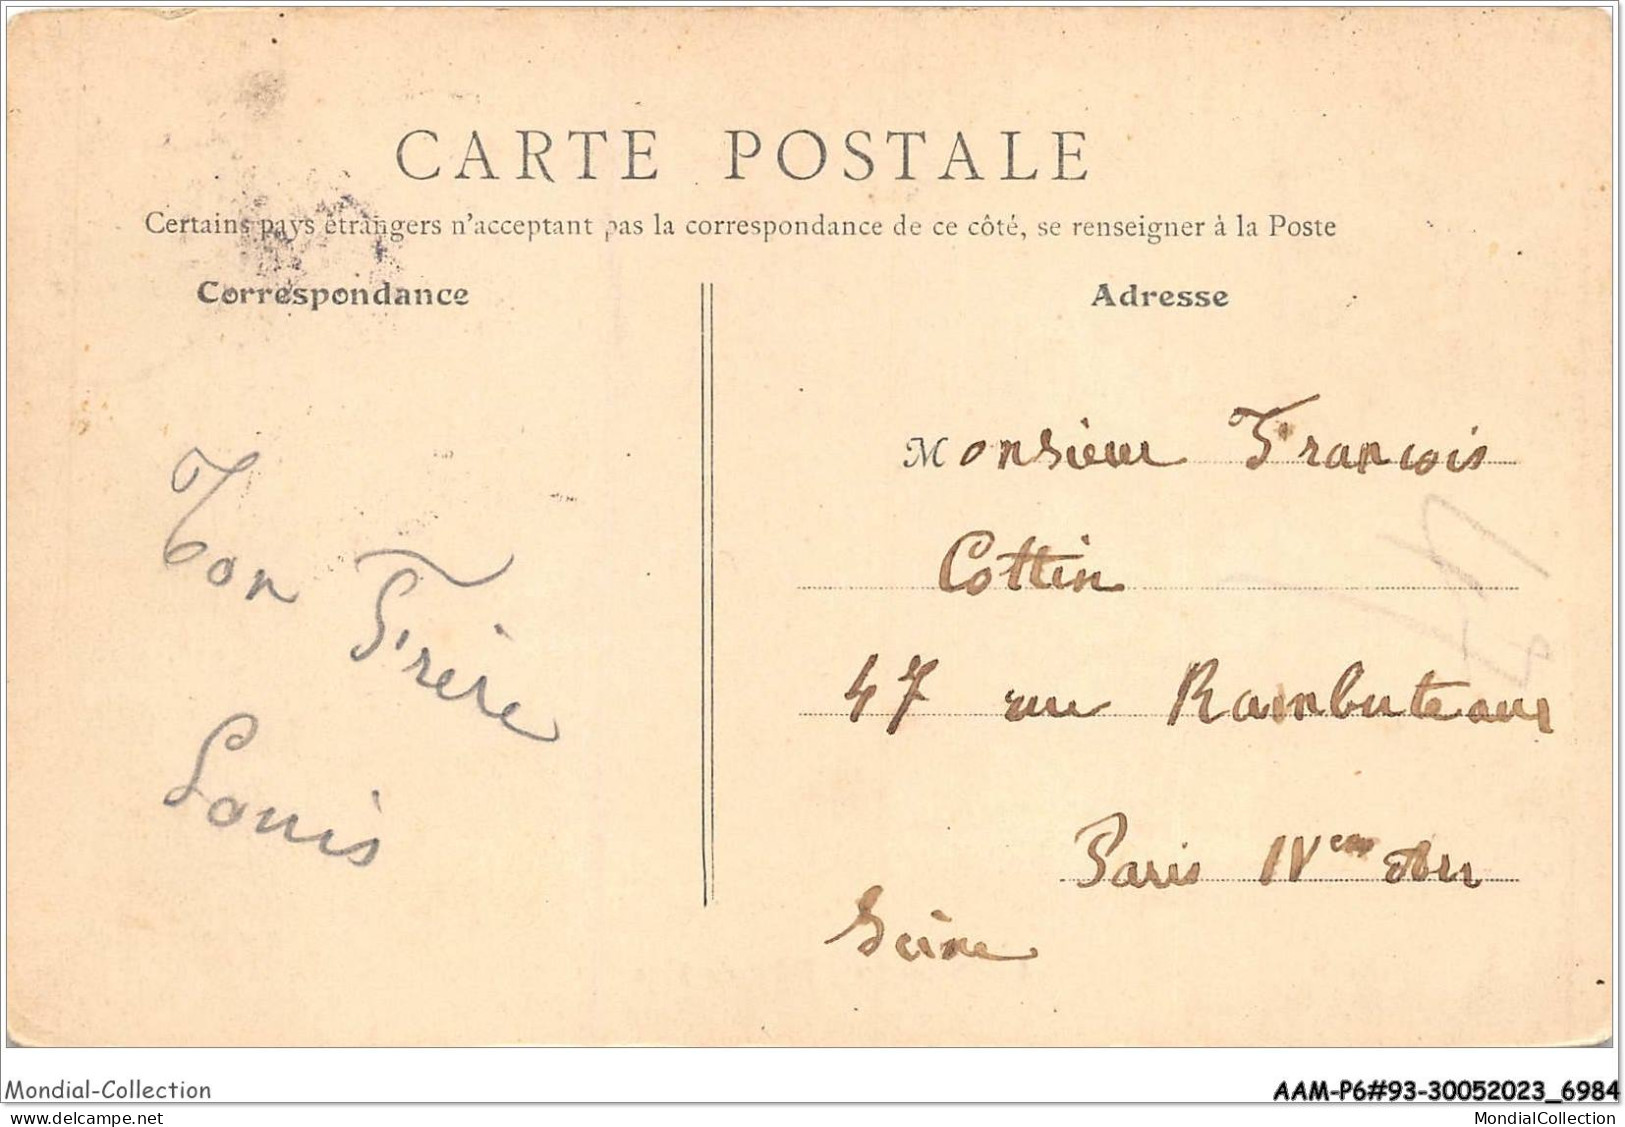 CARTE POSTALE
Certains pays étrangers n'acceptant pas la correspondance de ce côté, se renseigner à la Poste
Correspondance
Adresse
Ton Frère
Louis
Monsieur François
Cottin
47 rue Rambuteaux
Paris IVem Arr
Seine
Mondial-Collection
AAM-P6#93-30052023_6984
www.delcampe.net
MondialCollection